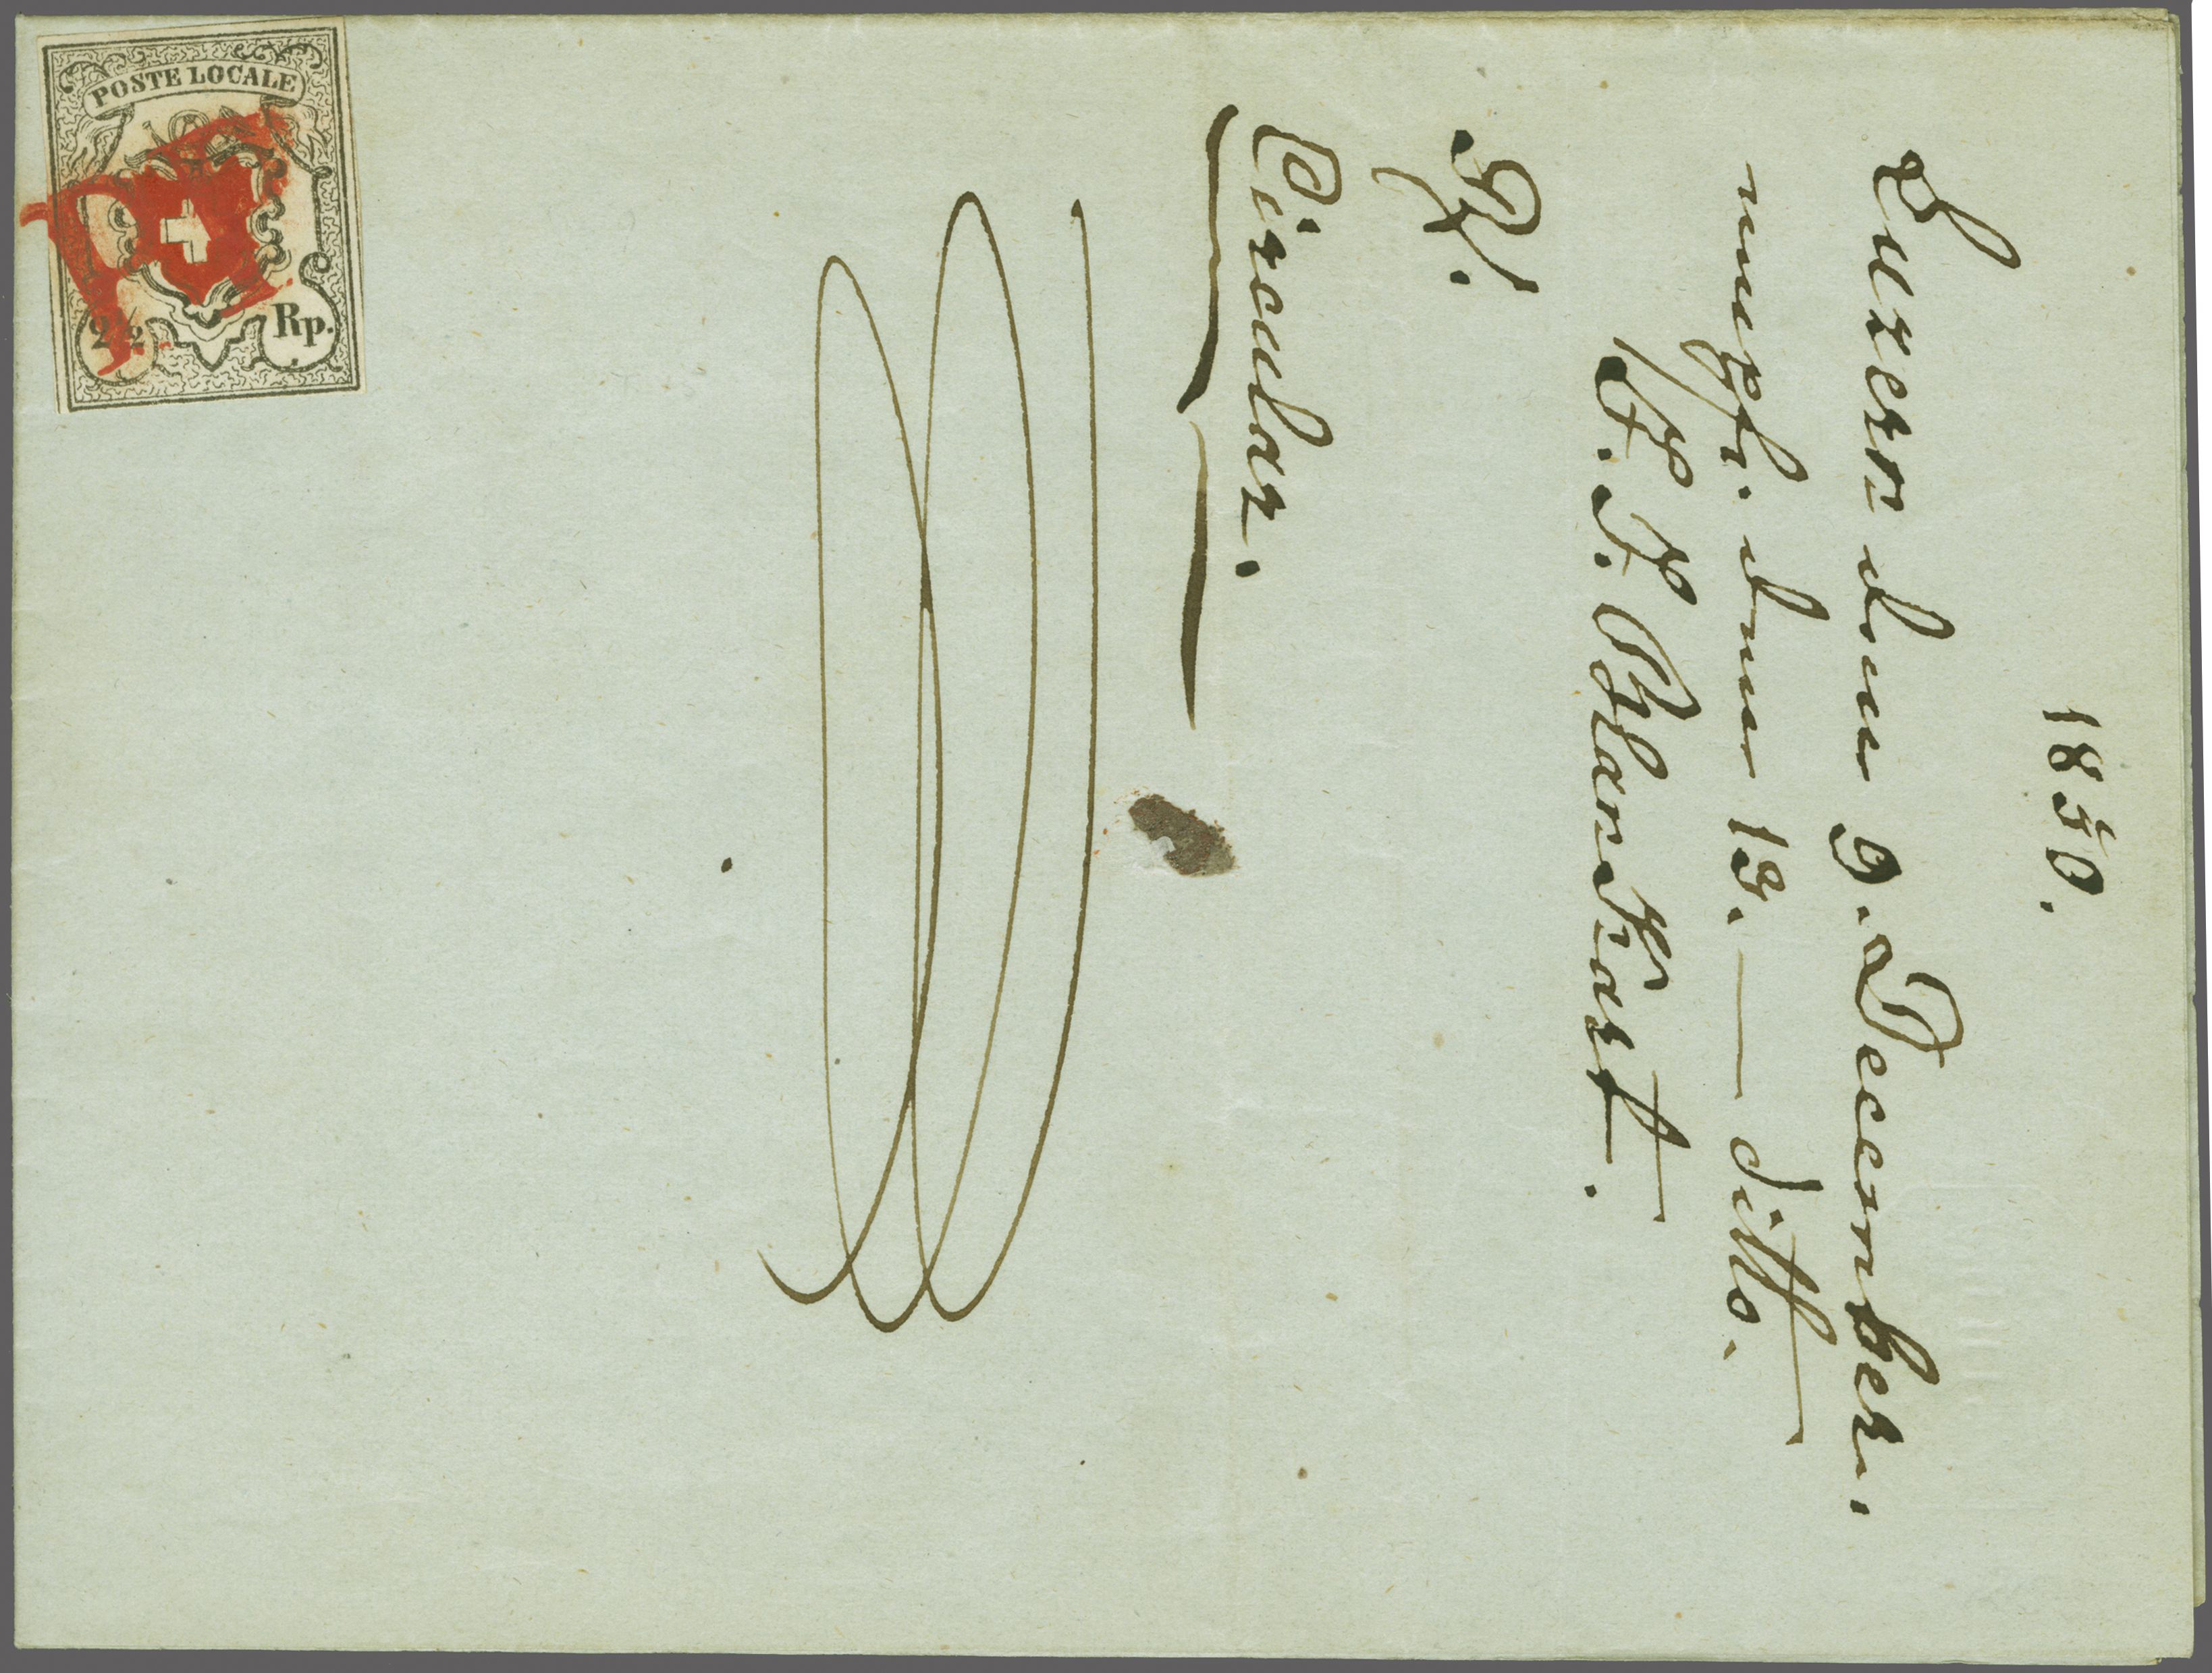 POSTE LOCALE
2½ Rp.
1850.
Luzern den 9. December.
empf. den 13. — ditto.
F. F. Blankart.
R.
Circular.